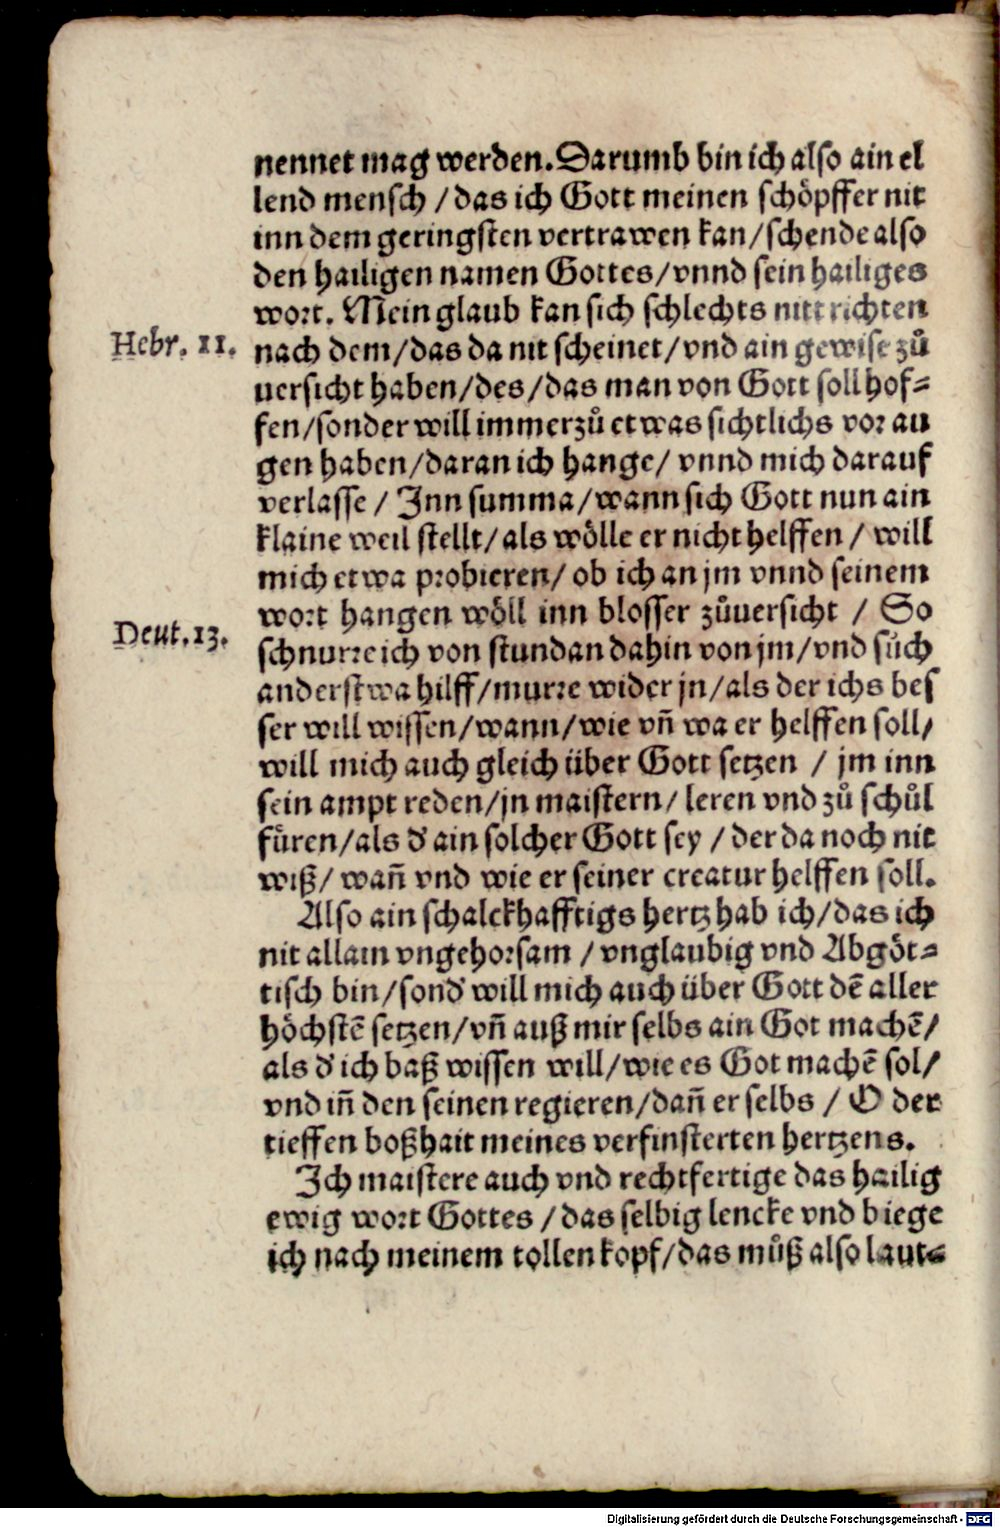 nennet mag werden. Darumb bin ich also ain el
lend mensch / das ich Gott meinen schöpffer nit
inn dem geringsten vertrawen kan / schende also
den hailigen namen Gottes / vnnd sein hailiges
wort. Mein glaub kan sich schlechts nitt richten
Hebr. 11. nach dem / das da nit scheinet / vnd ain gewise zů
uersicht haben / des / das man von Gott soll hof-
fen / sonder will immerzů etwas sichtlichs vor au
gen haben / daran ich hange / vnnd mich darauf
verlasse / Inn summa / wann sich Gott nun ain
klaine weil stellt / als wölle er nicht helffen / will
mich etwa probieren / ob ich an jm vnnd seinem
wort hangen wöll inn blosser zůuersicht / So
Deut. 13. schnurre ich von stundan dahin von jm / vnd sůch
anderstwa hilff / murre wider jn / als der ichs bes
ser will wissen / wann / wie vñ wa er helffen soll /
will mich auch gleich über Gott setzen / jm inn
sein ampt reden / jn maistern / leren vnd zů schůl
füren / als d' ain solcher Gott sey / der da noch nit
wiß / wañ vnd wie er seiner creatur helffen soll.
Also ain schalckhafftigs hertz hab ich / das ich
nit allain vngehorsam / vnglaubig vnd Abgöt-
tisch bin / sond' will mich auch über Gott dē aller
höchstē setzen / vñ auß mir selbs ain Got machē /
als d' ich baß wissen will / wie es Got machē sol /
vnd iñ den seinen regieren / dañ er selbs / O der
tieffen boßhait meines verfinsterten hertzens.
Ich maistere auch vnd rechtfertige das hailig
ewig wort Gottes / das selbig lencke vnd biege
ich nach meinem tollen kopf / das můß also laut-
Digitalisierung gefördert durch die Deutsche Forschungsgemeinschaft - DFG